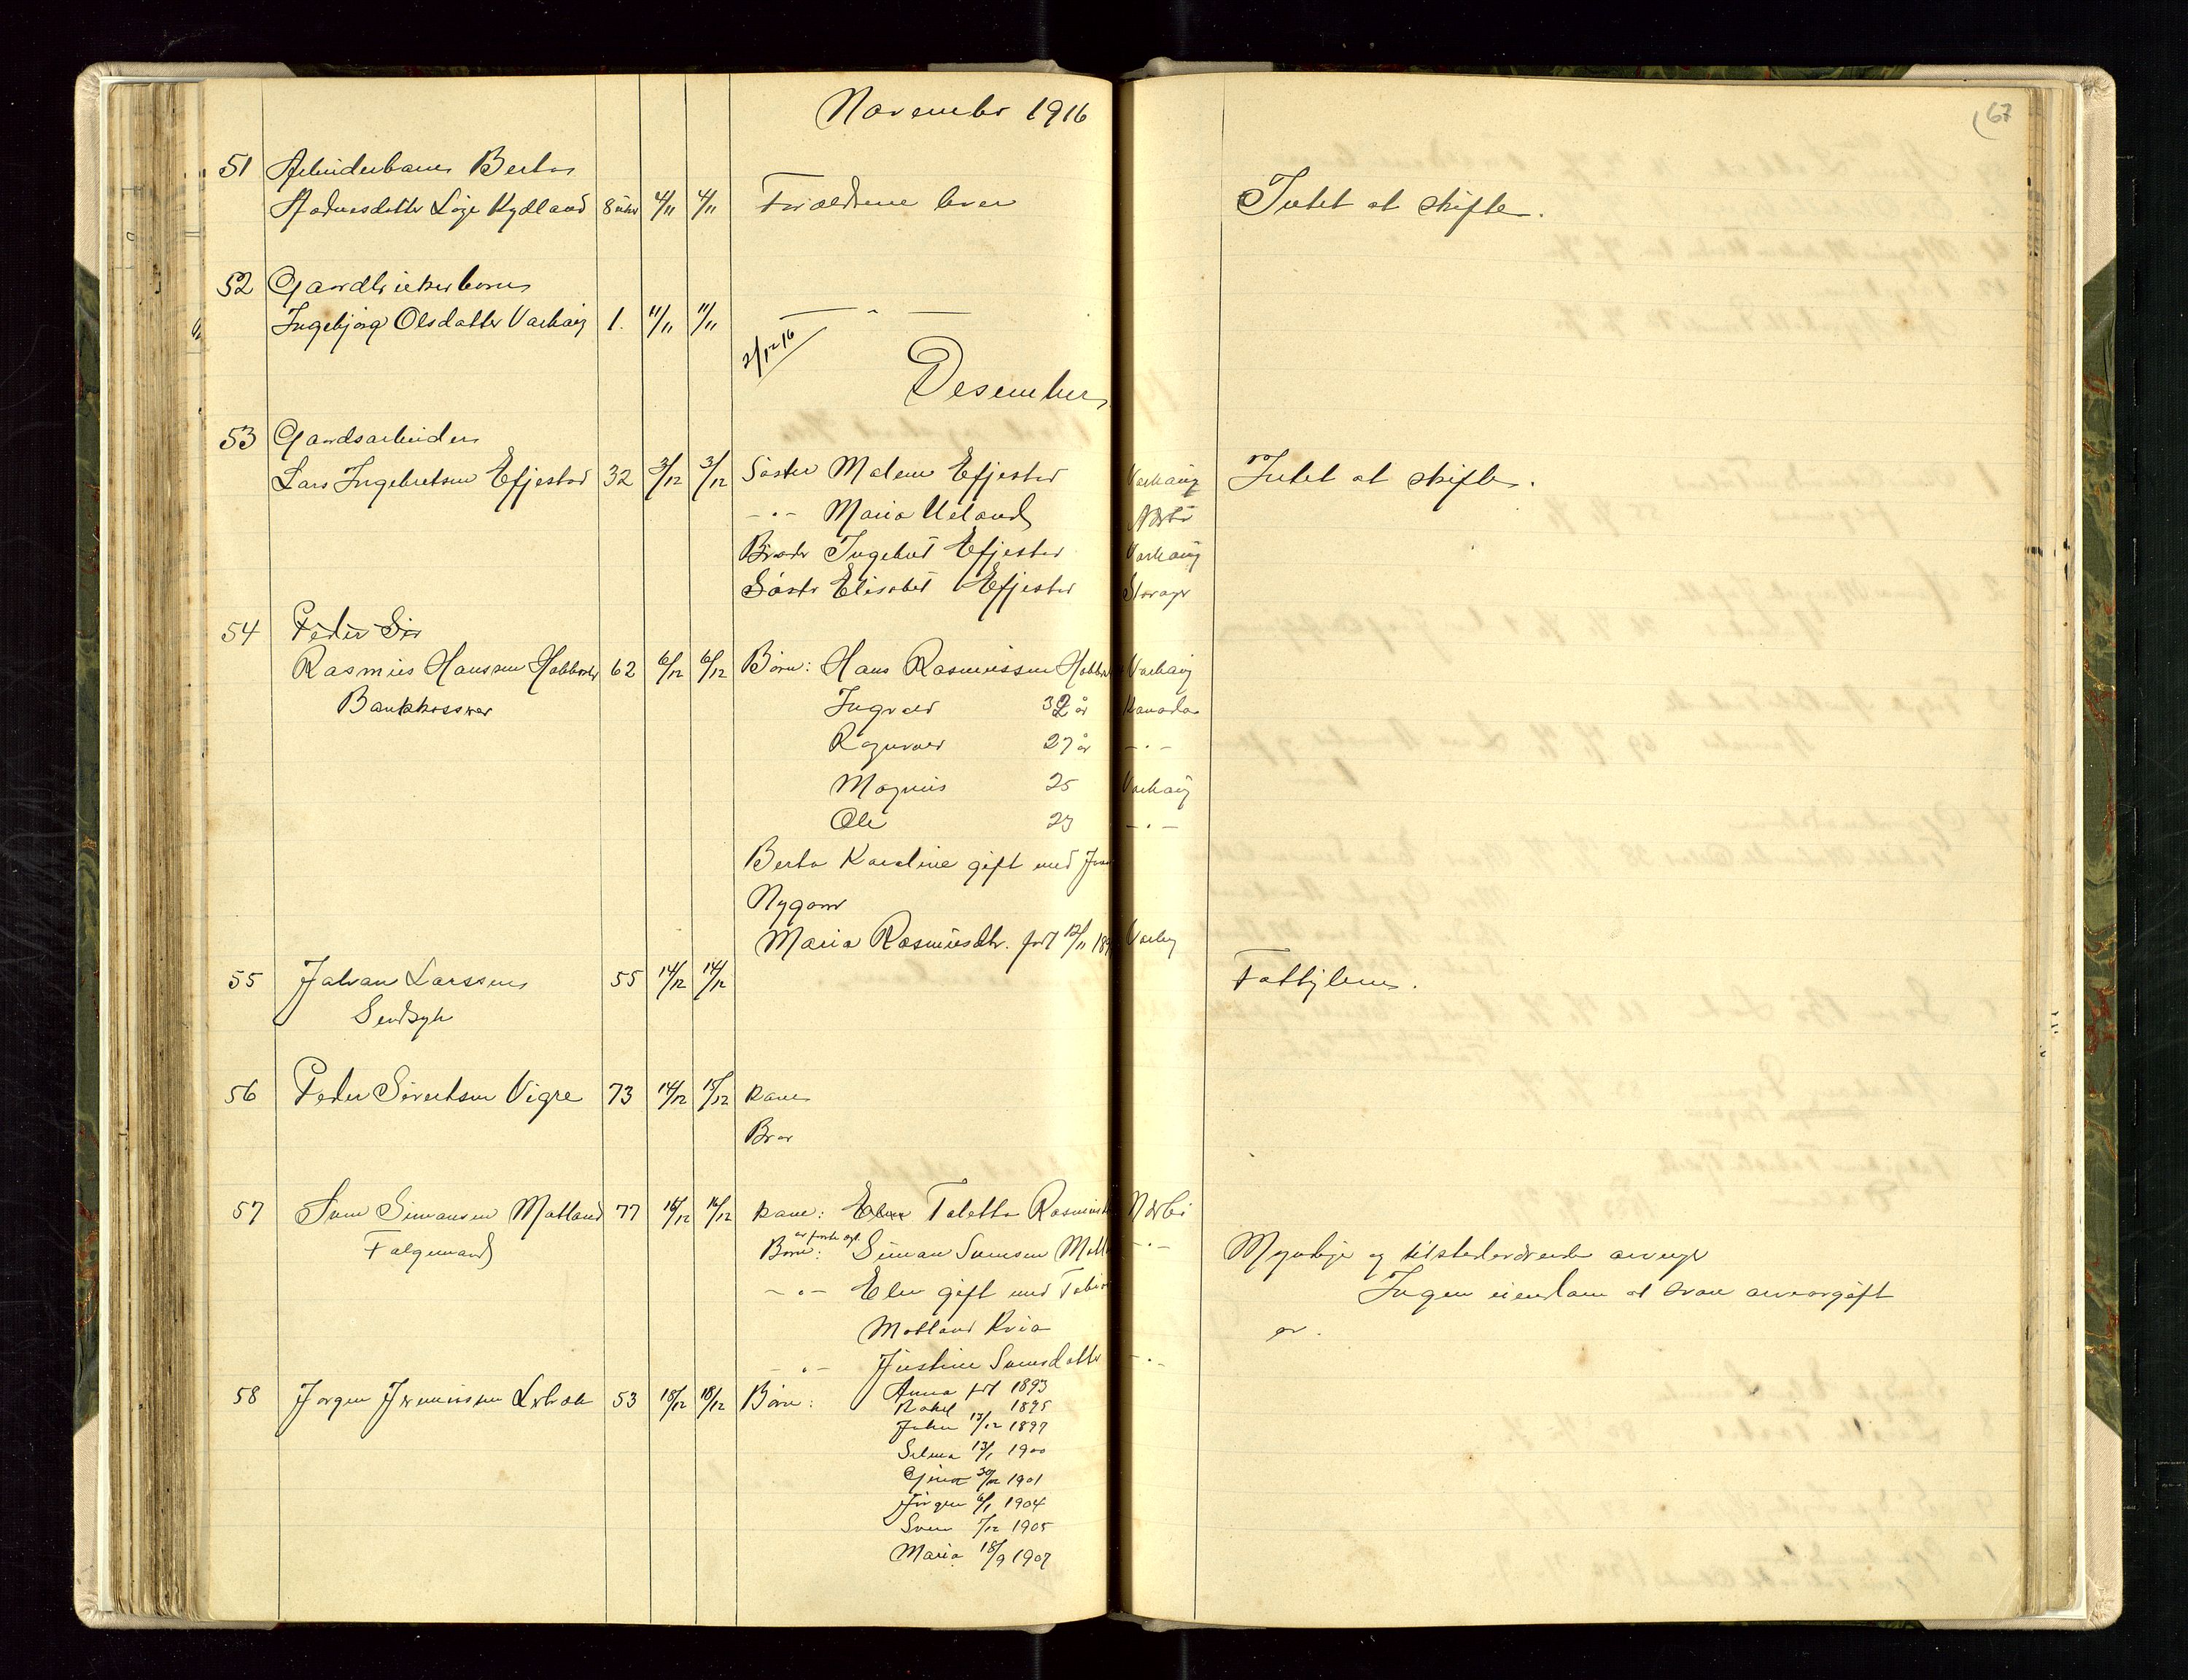 November 1916
67
51 Arbeiderbarn Berta
Aadnesdatter Løge Kydland 8 uker 4/11 4/11 Forældrene lever Intet at skifte.
52 Gaardbrukerbarn
Ingebjørg Olsdatter Varhaug 1. 11/11 11/11 — " —
2/12 16
Desember
53 Gaardsarbeider
Lars Ingebretsen Efjestad 32 3/12 3/12 Søster Malene Efjestad Varhaug Intet at skifte.
— " — Maria Ueland Nærbø
Broder Ingebret Efjestad Varhaug
Søster Elisabet Efjestad Stavager
54 Peder Si
Rasmus Hanssen Habberstad 62 6/12 6/12 Børn: Hans Rasmussen Habber Varhaug
Bankkasserer Ingvald 32 år Kanada
Ragnvald 27 år — " —
Magnus 25 Varhaug
Ole 23 — " —
Berta Karoline gift med
Nygaard
Maria Rasmusdtr. født 12/11 189 Varhaug
55 Johan Larssen 55 14/12 14/12 Fattiglem.
Sindsyk
56 Peder Sivertsen Vigre 73 14/12 15/12 Kone
Bror
57 Sven Simonsen Matland 77 16/12 16/12 Kone: Elen Taletta Rasmusd Nærbø
Folgemand Børn: Simon Svensen Matl — " —
Myndige og tilstedeværende arvinger
— " — Elen gift med Tobias
Ingen eiendom at svare arveavgift
Matland Kvia
av.
— " — Justine Svensdatter — " —
58 Jørgen 53 18/12 18/12 Børn: Anna født 1893
Rakel 1895
John 17/12 1897
Selma 13/1 1900
30/12 1901
Jørgen 6/1 1904
Sven 7/12 1905
Maria 18/9 1907